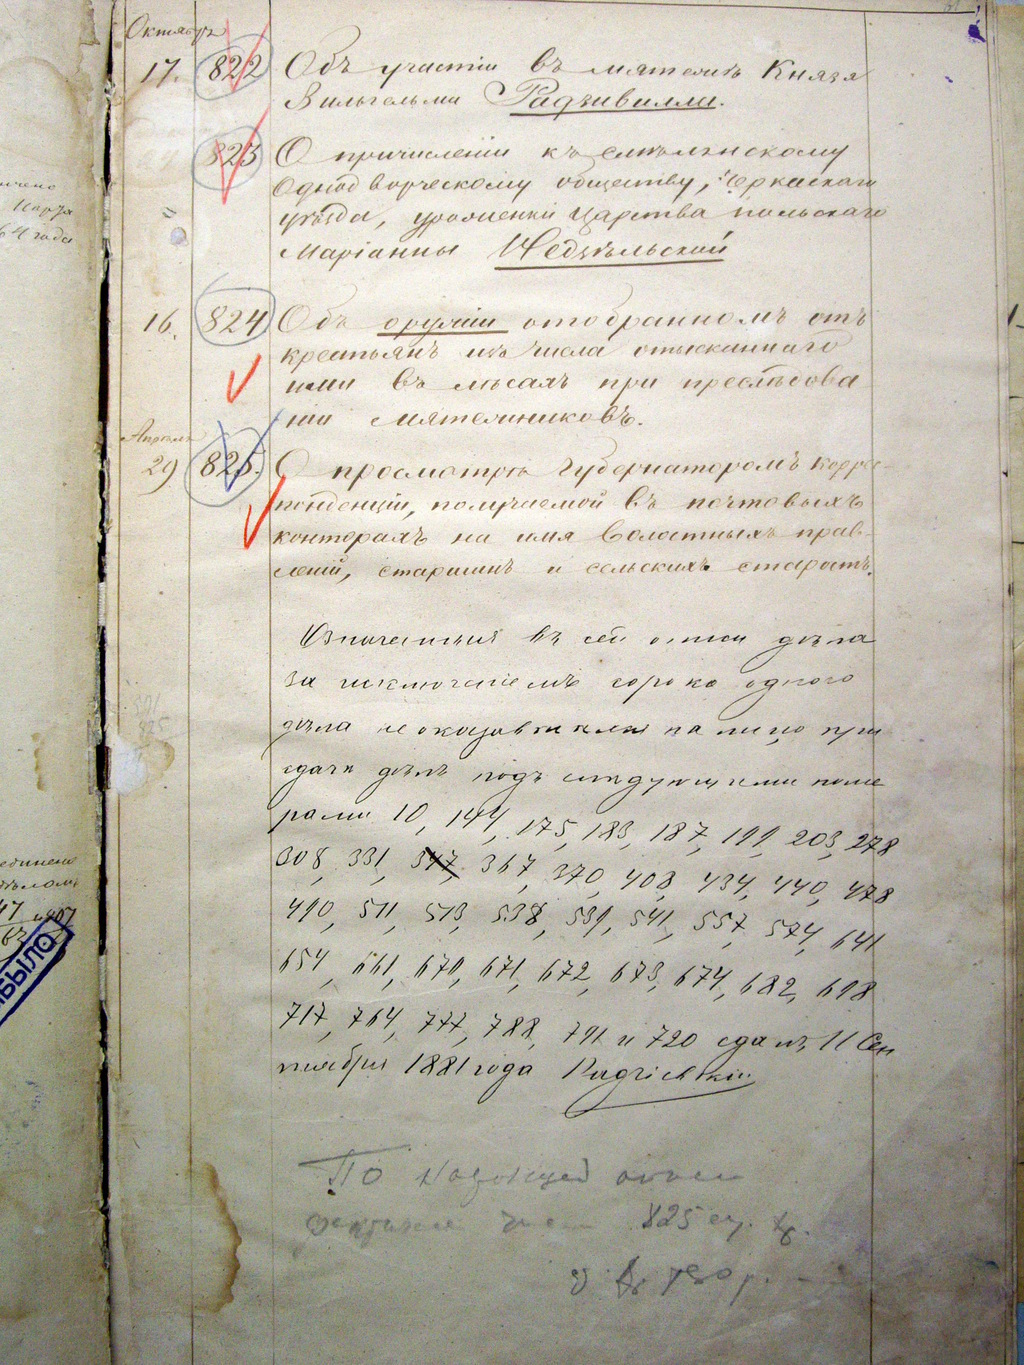 Октябрь
17. 822 Объ участіи въ мятежѣ Князя
Вильгельма Радзивилла.
823 О причисленіи къ скому
однодворческому обществу, Черкаскаго
уѣзда, уроженки Царства польскаго
Маріанны Недзѣльской
16. 824 Объ оружіи отобранномъ отъ
крестьянъ изъ числа отысканнаго
ими въ лѣсахъ при преслѣдова
ніи мятежниковъ.
Апрѣль
29 825. О просмотрѣ Губернаторомъ корре-
понденціи, получаемой въ почтовыхъ
конторахъ на имя Волостныхъ прав-
леній, старшинъ и сельскихъ старостъ.
Означенныя въ сей описи дѣла
за исключеніемъ сорока одного
дѣла не оказавшихся на лицо при
сдачи дѣлъ подъ слѣдующими номе
рами 10, 144, 175, 183, 187, 199, 203, 278
308, 331, 347, 367, 370, 408, 434, 440, 478
490, 511, 513, 538, 539, 541, 557, 574, 641
654, 661, 670, 671, 672, 673, 674, 682, 698
717, 764, 777, 788, 791 и 720 сдалъ 11 Сен
тября 1881 года
По описи
825 ед. хр.
года
БЫЛО